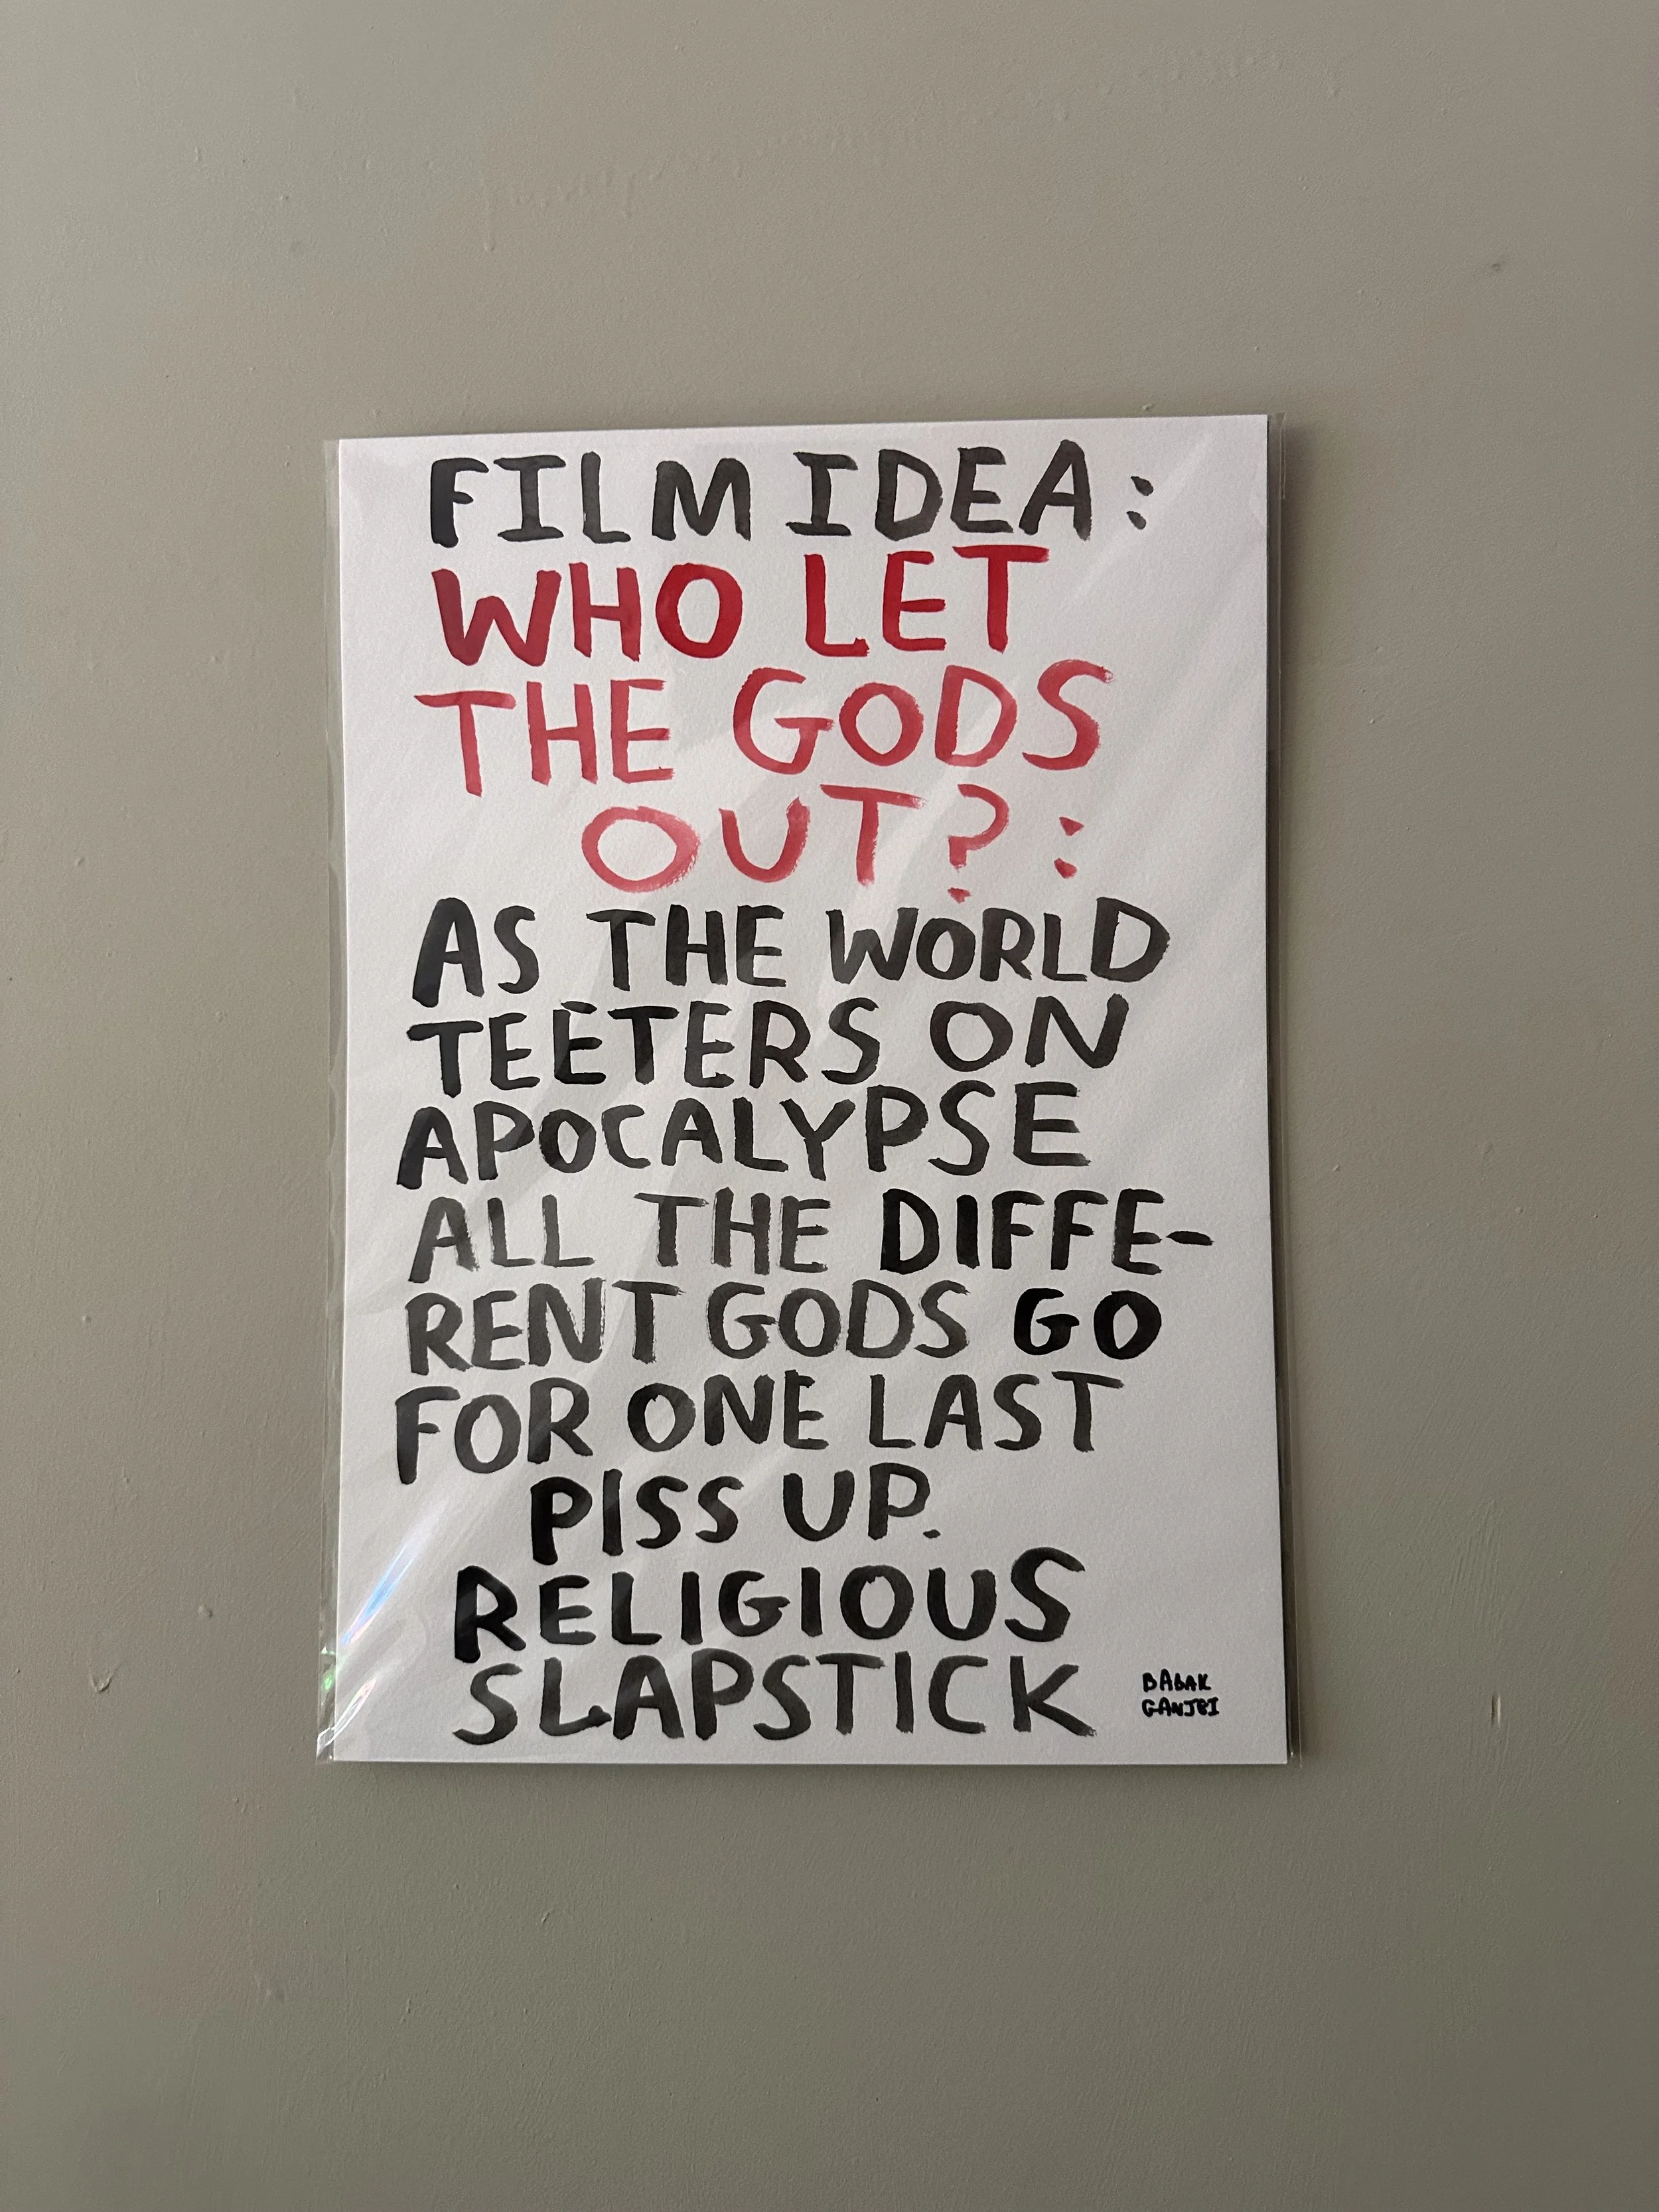 FILM IDEA:
WHO LET
THE GODS
OUT?:
AS THE WORLD
TEETERS ON
APOCALYPSE
ALL THE DIFFE-
RENT GODS GO
FOR ONE LAST
PISS UP.
RELIGIOUS
SLAPSTICK
BABAK
GANJEI